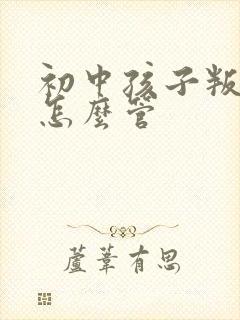 初中孩子叛
怎麼管
蘆葦有思